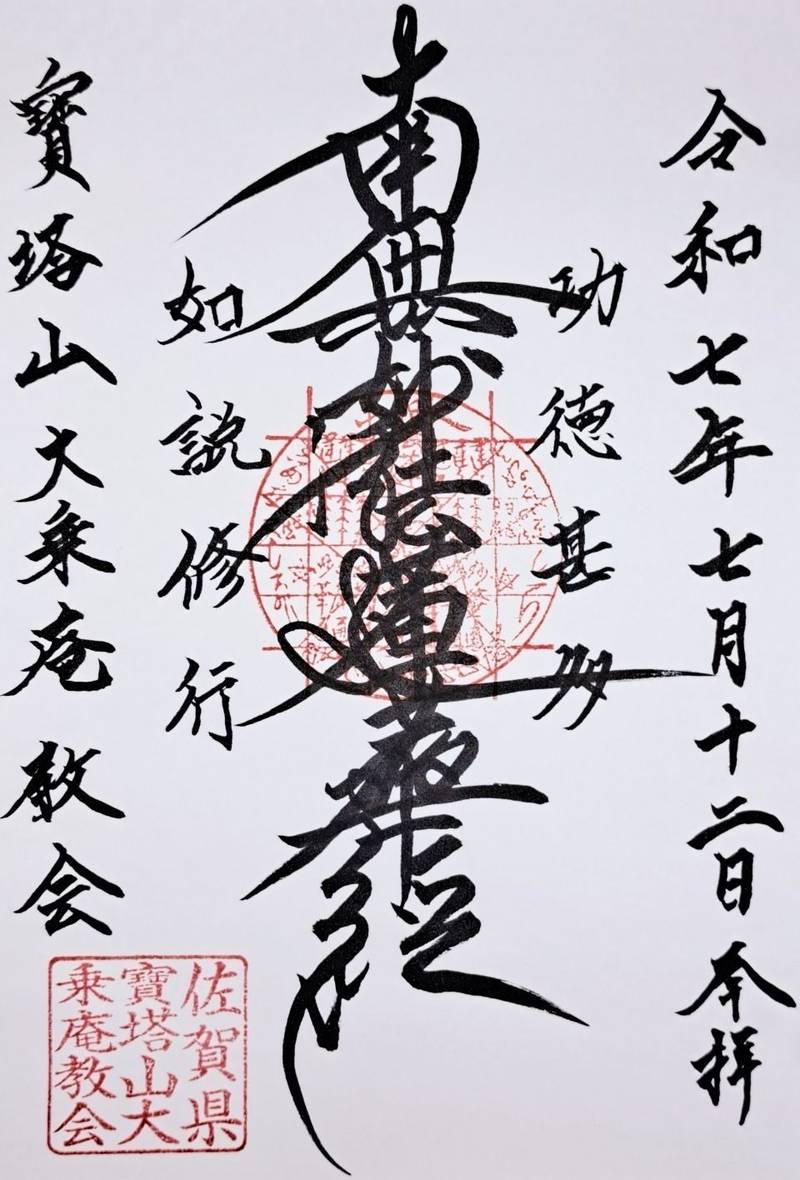 令和七年七月十二日 奉拝
功徳甚多
南無妙法蓮華経
如説修行
寶塔山大乗庵教会
佐賀県
寶塔山大
乗庵教会